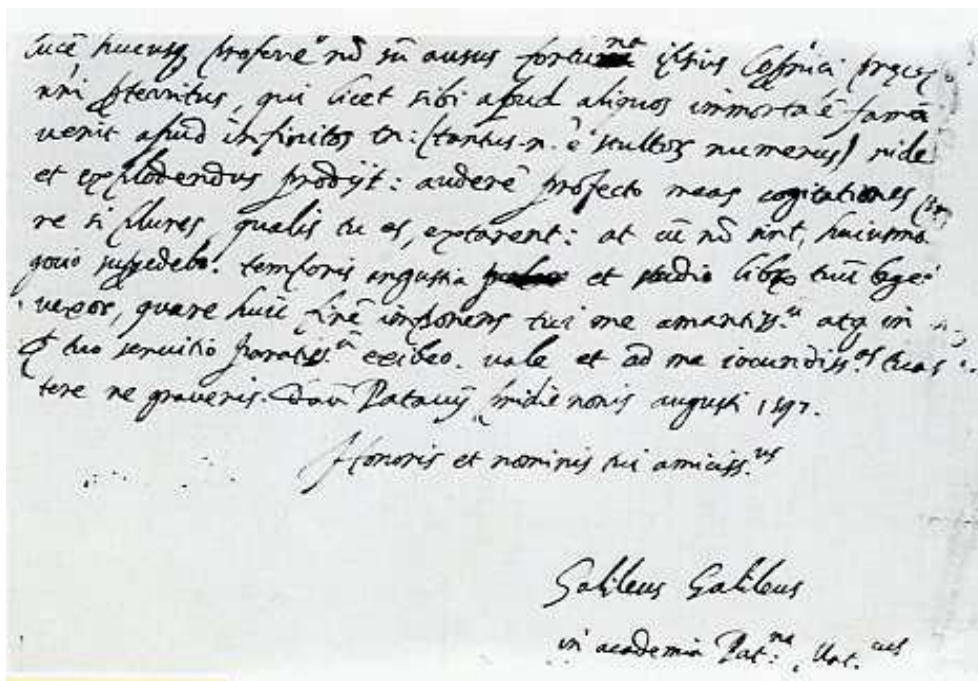 lucē hucusq̨ proferre nō sū ausus fortuna ipsius Copernici pręcep
nr̄i perterritus, qui licet sibi apud aliquos immortalē famā
verit apud infinitos tn̄: (tantus .n. ē stultorꝝ numerus) ride
et explodendus prodijt: auderē profecto meas cogitationes pro
re si plures, qualis tu es, extarent: at cū nō sint, huiusmo
gotio supsedebo. temporis angustia et studio librū tuū lege
vexor, quare huic finē imponens tui me amantiss.ᵘ atq̨ in
tuo servitio paratiss.ᵘ exibeo. vale et ad me iocundiss.ᵃˢ tuas
tere ne graveris. Dat Patavij pridie nonis augusti 1597.
Honoris et nominis tui amiciss.ᵘˢ
Galileus Galileus
in academia Pat.ⁿᵃ Mat.ᶜᵘˢ